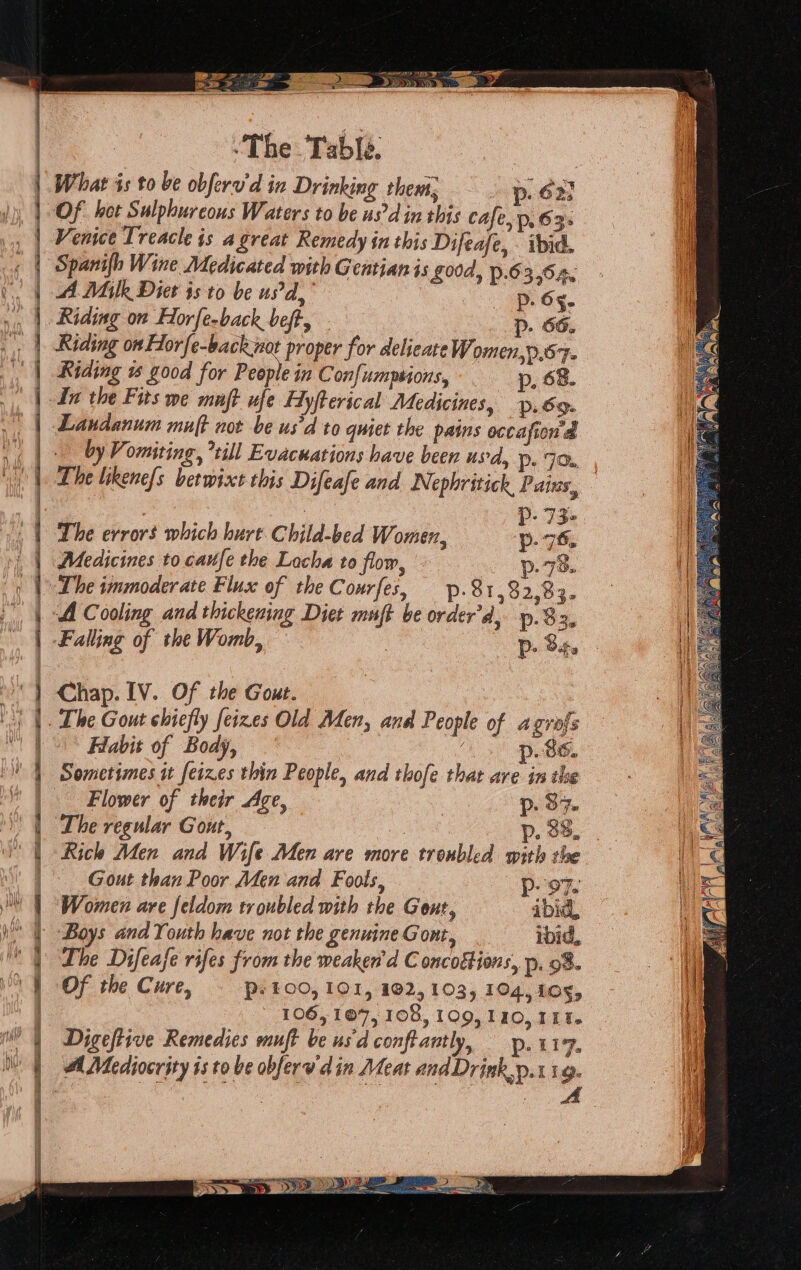 The Table.
What is to be obſerv'd in Drinking them, p. 62.
Of hot Sulphureous Waters to be us'd in this caſe, p. 63.
Venice Treacle is a great Remedy in this Diſeaſe, ibid.
Spaniſh Wine Medicated with Gentian is good, p.63,64.
A Milk Diet is to be us'd, p. 65.
Riding on Horſe-back beſt, p. 66.
Riding on Horſe-back not proper for delicate Women, p.67.
Riding is good for People in Conſumptions, p. 68.
In the Fits we muſt uſe Hyſterical Medicines, p. 69.
Laudanum muſt not be us'd to quiet the pains occaſion'd
by Vomiting, 'till Evacuations have been us'd, p. 70.
The likeneſs betwixt this Diſeaſe and Nephritick Pains,
p. 73.
The errors which hurt Child-bed Women, p. 76.
Medicines to cauſe the Locha to flow, p. 78.
The immoderate Flux of the Courſes, p. 81, 82, 83.
A Cooling and thickening Diet muſt be order'd, p. 83.
Falling of the Womb, p. 84.
Chap. IV. Of the Gout.
The Gout chiefly ſeizes Old Men, and People of a groſs
Habit of Body, p. 86.
Sometimes it ſeizes thin People, and thoſe that are in the
Flower of their Age, p. 87.
The regular Gout, p. 88.
Rich Men and Wiſe Men are more troubled with the
Gout than Poor Men and Fools, p. 97.
Women are ſeldom troubled with the Gout, ibid.
Boys and Youth have not the genuine Gout, ibid.
The Diſeaſe riſes from the weaken'd Concoctions, p. 98.
Of the Cure, p. 100, 101, 102, 103, 104, 105,
106, 107, 108, 109, 110, 111.
Digeſtive Remedies muſt be us'd conſtantly, p. 117.
A Mediocrity is to be obſerv'd in Meat and Drink, p. 119.
A